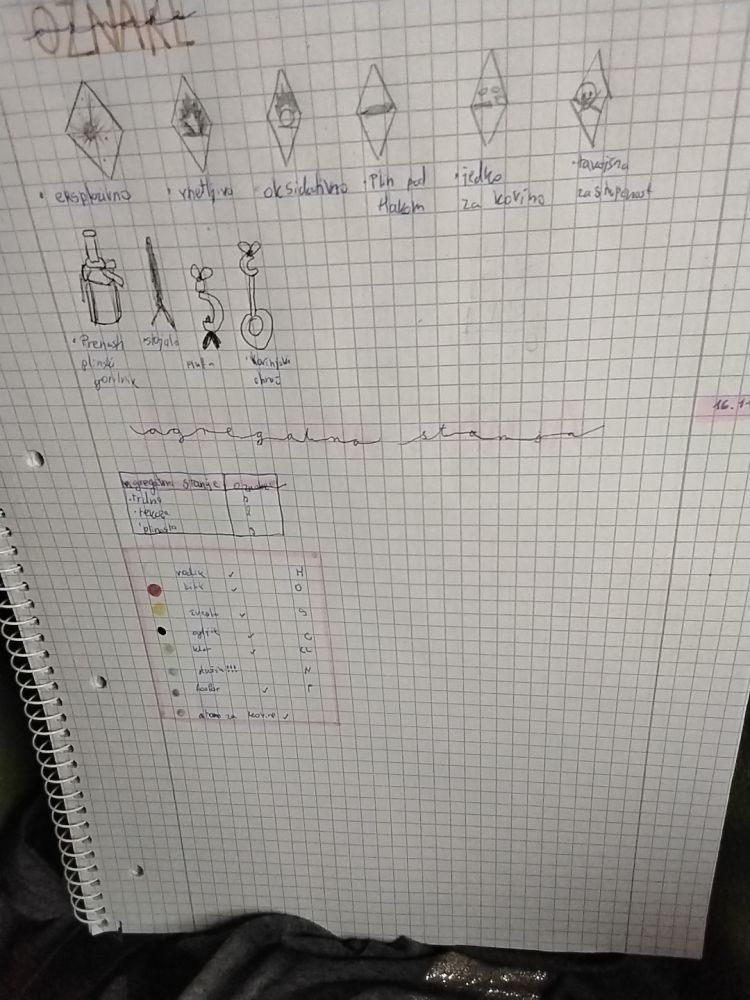 OZNAKE
• eksplozivno
• vnetljivo
• oksidativno
• Plin pod
tlakom
• jedko
za kovino
zastrupenost
• Prenosni
plinski
gorilnik
• stojalo
Mufa
obroč
agregatna stanja
16.1
Agregatno stanje
• trdno
• tekoče
• plinasto
vodik ✓ H
kisik ✓ O
žveplo ✓ S
ogljik ✓ C
klor ✓ CL
dušik!!! N
fosfor ✓
atomi za kovine ✓